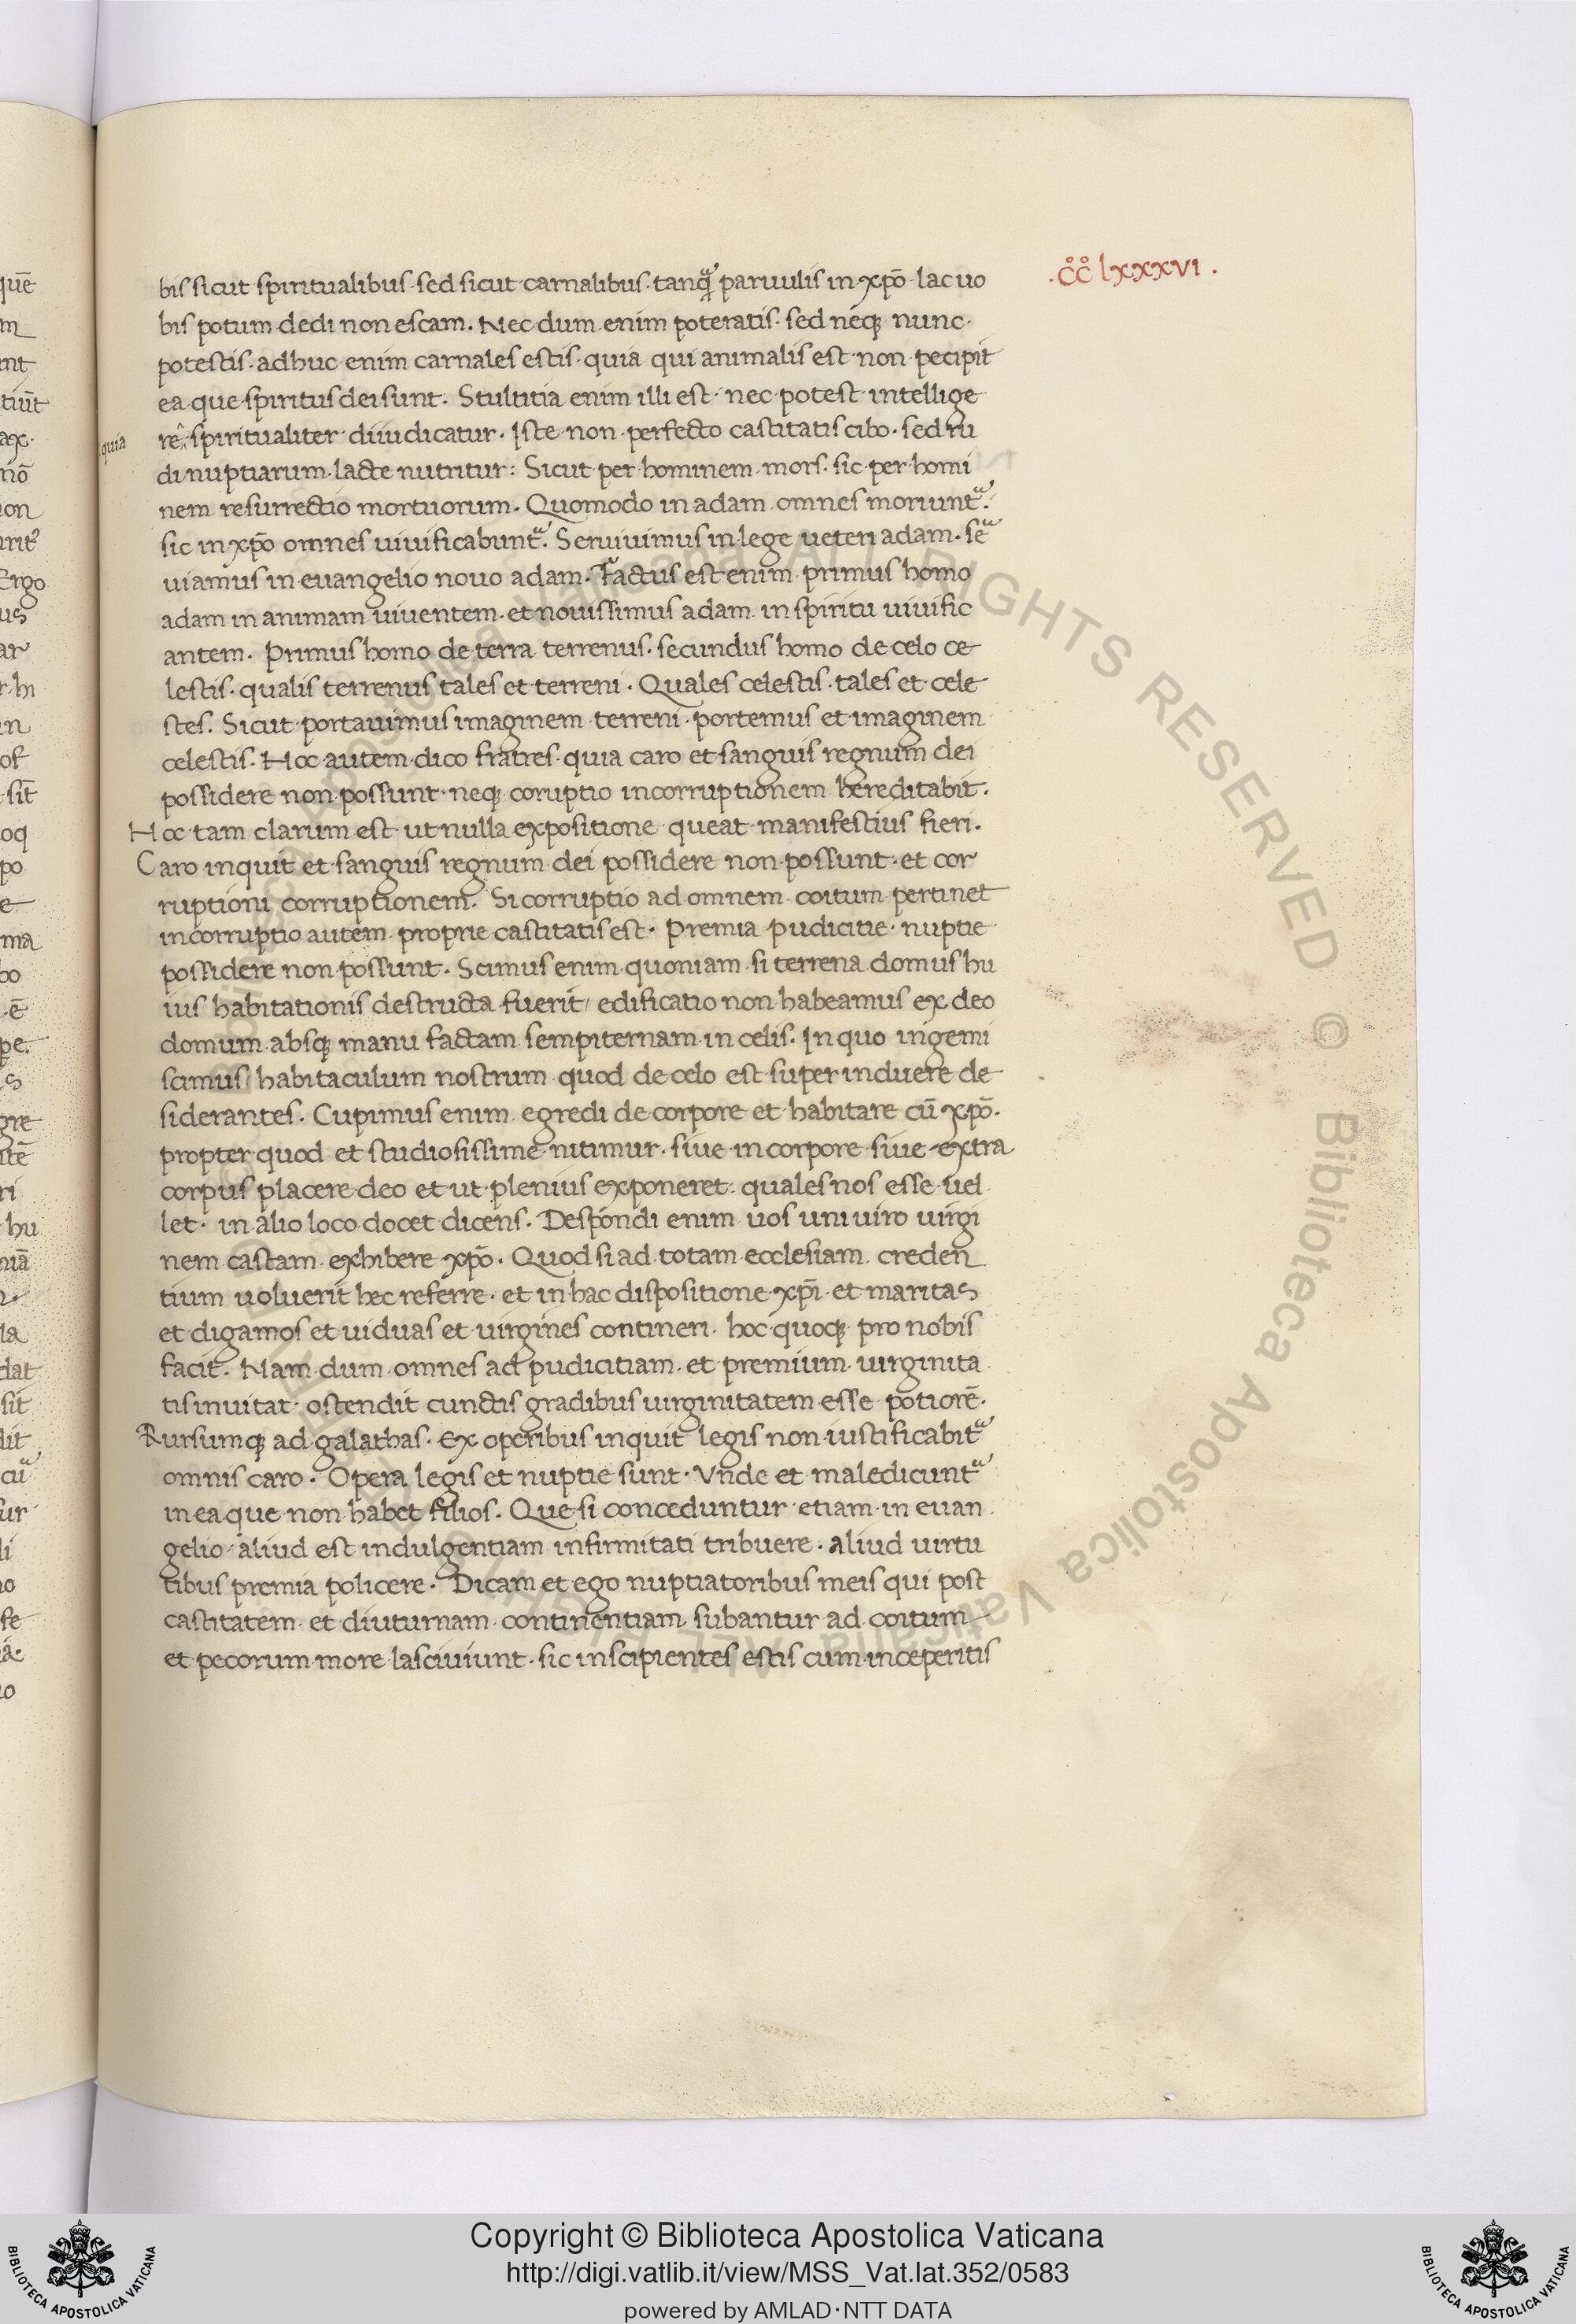 .CC lxxxvi.
bis sicut spiritualibus· sed sicut carnalibus· tanqᷓ paruulis in xp̄o· lac uo
bis potum dedi non escam. Nec dum enim poteratis· sed neqꝫ nunc·
potestis· adhuc enim carnales estis· quia qui animalis est non pecipit
ea que spiritus dei sunt. Stultitia enim illi est· nec potest intellige
quia
re spiritualiter diiudicatur. Iste non perfecto castitatis cibo· sed ru
di nuptiarum lacte nutritur: Sicut per hominem mors· sic per homi
nem resurrectio mortuorum. Quomodo in adam omnes moriuntᷓ.
sic in xp̄o omnes uiuificabuntᷓ. Seruiuimus in lege ueteri adam. seᷓ
uiamus in euangelio nouo adam. Factus est enim primus homo
adam in animam uiuentem· et nouissimus adam in spiritu uiuific
antem. Primus homo de terra terrenus· secundus homo de celo ce
lestis· qualis terrenus tales et terreni. Quales celestis· tales et cele
stes. Sicut portauimus imaginem terreni· portemus et imaginem
celestis. Hoc autem dico fratres· quia caro et sanguis regnum dei
possidere non possunt· neqꝫ coruptio incorruptionem hereditabit.
Hoc tam clarum est ut nulla expositione queat manifestius fieri.
Caro inquit et sanguis regnum dei possidere non possunt· et cor
ruptioni corruptionem. Si corruptio ad omnem coitum pertinet
incorruptio autem proprie castitatis est. Premia pudicitie· nuptie
possidere non possunt. Scimus enim quoniam si terrena domus hu
ius habitationis destructa fuerit/ edificatio non habeamus ex deo
domum absqꝫ manu factam sempiternam in celis. In quo ingemi
scimus habitaculum nostrum quod de celo est super induere de
siderantes. Cupimus enim egredi de corpore et habitare cū xp̄o.
propter quod et studiosissime nitimur· siue in corpore siue extra
corpus placere deo et ut plenius exponeret· quales nos esse uel
let· in alio loco docet dicens. Despondi enim uos uni uiro uirgi
nem castam exhibere xp̄o. Quod si ad totam ecclesiam creden
tium uoluerit hec referre· et in hac dispositione xp̄i et maritas
et digamos et uiduas et uirgines contineri· hoc quoqꝫ pro nobis
facit. Nam dum omnes ad pudicitiam et premium uirginita
tis inuitat· ostendit cunctis gradibus uirginitatem esse potiorē.
Rursumqꝫ ad galathas. Ex operibus inquit legis non iustificabitᷓ
omnis caro. Opera legis et nuptie sunt. Vnde et maledicuntᷓ
in ea que non habet filios. Que si conceduntur etiam in euan
gelio· aliud est indulgentiam infirmitati tribuere· aliud uirtu
tibus premia policere. Dicam et ego nuptiatoribus meis qui post
castitatem et diuturnam continentiam subantur ad coitum
et pecorum more lasciuiunt· sic inscipientes estis cum inceperitis
BIBLIOTECA APOSTOLICA VATICANA
Copyright © Biblioteca Apostolica Vaticana
http://digi.vatlib.it/view/MSS_Vat.lat.352/0583
powered by AMLAD·NTT DATA
BIBLIOTECA APOSTOLICA VATICANA